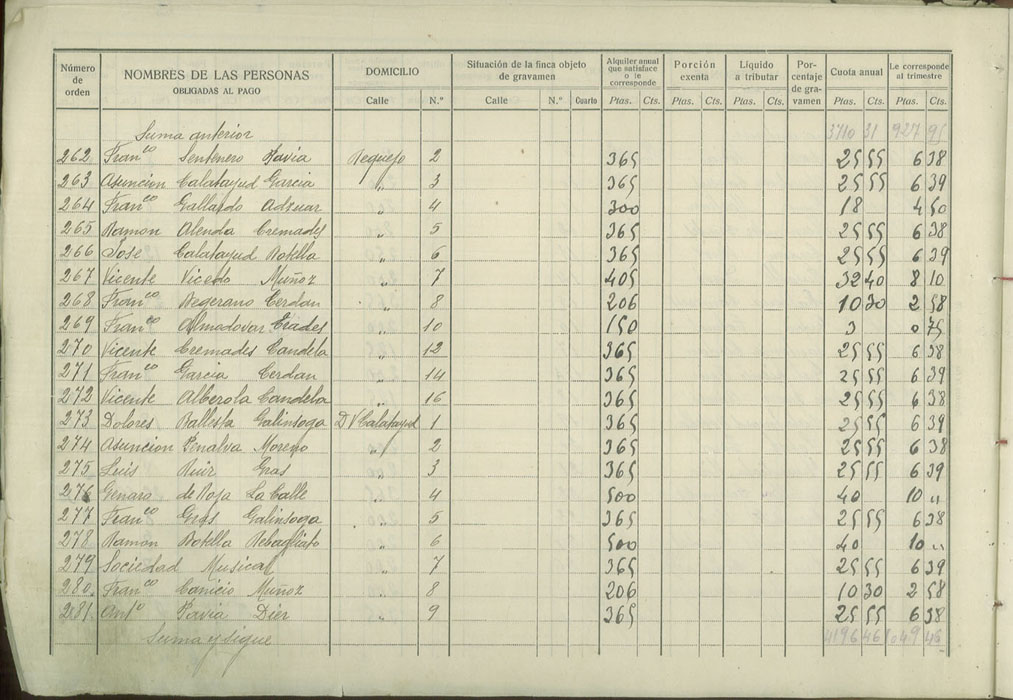 Número de orden
NOMBRES DE LAS PERSONAS
OBLIGADAS AL PAGO
DOMICILIO
Calle N.º
Situación de la finca objeto de gravamen
Calle N.º Cuarto
Alquiler anual que satisface o le corresponde
Ptas. Cts.
Porción exenta
Ptas. Cts.
Líquido a tributar
Ptas. Cts.
Porcentaje de gravamen
Cuota anual
Ptas. Cts.
Le corresponde al trimestre
Ptas. Cts.
Suma anterior 3710 31 927 91
262 Franco Sentenero Pavia Requejo 2 365 25 55 6 38
263 Asuncion Calatayud Garcia " 3 365 25 55 6 39
264 Franco Gallardo Adsuar " 4 300 18 4 50
265 Ramon Alenda Cremades " 5 365 25 55 6 38
266 Jose Calatayud Botella " 6 365 25 55 6 39
267 Vicente Vicedo Muñoz " 7 405 32 40 8 10
268 Franco Cerdan " 8 206 10 30 2 58
269 Franco Almadovar " 10 150 3 0 75
270 Vicente Cremades Candela " 12 365 25 55 6 38
271 Franco Garcia Cerdan " 14 365 25 55 6 39
272 Vicente Alberola Candela " 16 365 25 55 6 38
273 Dolores Ballesta Galinsoga D V Calatayud 1 365 25 55 6 39
274 Asuncion Penalva Moreno " 2 365 25 55 6 38
275 Luis Ruiz Gras " 3 365 25 55 6 39
276 Genara de Roja La Calle " 4 500 40 10 "
277 Franco Gras Galinsoga " 5 365 25 55 6 38
278 Ramon Botella Rebagliato " 6 500 40 10 "
279 Sociedad Musical " 7 365 25 55 6 39
280 Franco Canicio Muñoz " 8 206 10 30 2 58
281 Anto Pavia Dier " 9 365 25 55 6 38
Suma y sigue 4196 46 1049 46